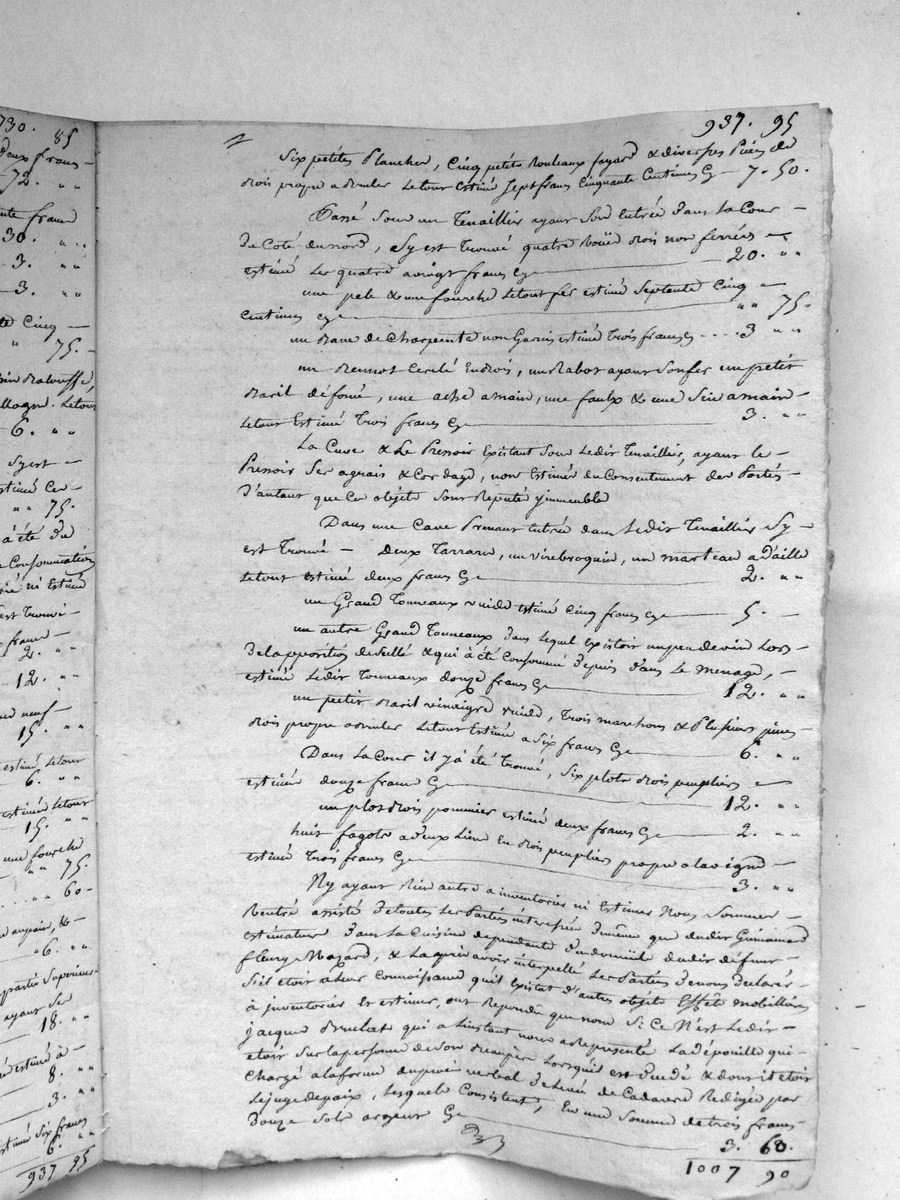 730. 85
deux francs
72. " "
30. " "
3. " "
3. " "
Cinq —
" 75. —
6. " "
" " 75.
à été du
Consommation
ni Estimé
2. " "
12. " "
neuf
15. " "
estimé Letout
6. " "
estimé Letout
15. " "
une fourche
" " 75.
60 —
6. " "
partie Superieure
ayant Ses
18. " "
estimé à —
8. " "
3. " "
estimé Six francs
6. " "
937 95
937. 95
Six petites Plancher, Cinq petits Rouleaux fayard & diverses Pièces de
Bois propre a Bruler Letout Estimé Sept francs Cinquante Centimes Cy — 7. 50.
Passé Sous un Tenaillier ayant Son Entrée dans La Cour —
du Coté du nord, Sy est Trouvé quatre Bois non ferrées —
estimé Les quatre a vingt francs Cy — 20. " "
une pele & une fourche Letout fer estimé Septante Cinq —
Centimes Cy — " " 75.
un Banc de Charpente non Garni estimé Trois francs Cy ---- 3 " "
un Cerclé En Bois, un Rabot ayant Son fer un petit
Baril défoncé, une ache a main, une faulx & une Sie a main —
Letout Estimé Trois francs Cy — 3. " "
La Cuve & Le Pressoir Existant Sous Ledit Tenaillier, ayant le
Pressoir Ses agrais & Cordage, non Estimés du Consentement des Parties
D'autant que Ces objets Sont Reputé ymmeuble
Dans une Cave Prenant Entrée dans Ledit Tenaillier Sy —
est Trouvé — Deux Tarrares, un virebroquin, un marteau a d'aille
Letout estimé deux francs Cy — 2. " "
un Grand Tonneaux vuide estimé Cinq francs Cy — 5. -
un autre Grand Tonneaux dans Lequel Existoit un peu de vin Lors —
De lapposition de Sellé & qui à été Consommé depuis dans Le menage, —
estimé Ledit Tonneaux douze francs Cy — 12. " "
un petit Baril vinaigre vuide, Trois marchons & Plusieurs pieces
Bois propre a Bruler Letout Estimé a Six francs Cy — 6. " "
Dans La Cour il y à été Trouvé, Six plots Bois peupliers —
estimée douze francs Cy — 12. " "
un plot Bois pommier estimé deux francs Cy — 2. " "
huit fagots a deux Lien En Bois peupliers propre a la vigne —
estimé Trois francs Cy — 3. " "
N'y ayant Rien autre a inventorier ni Estimer Nous Sommes —
Rentré assisté de toutes Les Parties interessée de même que dudit Guinamard
estimateur dans La Cuisine dependante du domicile dudit défunt —
fleury Mazard, & La après avoir interpellé Les Parties de nous declarer
Sil etoit a Leur Connoissance qu'il Existat d'autres objets Effets mobilliers
à inventorier Et estimer, ont Repondu que non Si Ce N'est Ledit —
Jacque Bruchet qui a Linstant nous a Representé La dépouille qui —
etoit Sur la personne de Son Beaupere Lorsquil est & dont il etoit
Chargé a la forme du procé verbal de Levée de Cadavre Redigée par
Le juge de paix, Lesquels Consistent, En une Somme de trois francs —
Douze Sols argent Cy — 3. 60.
1007 90